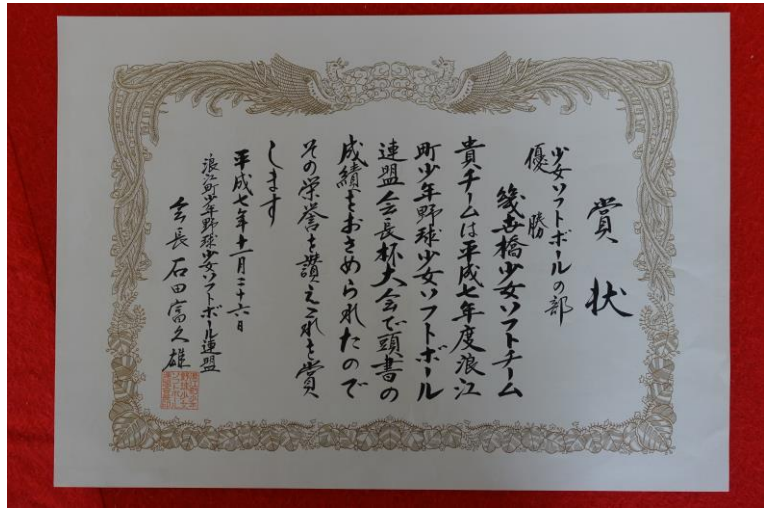 賞状
少女ソフトボールの部
優勝
幾世橋少女ソフトチーム
貴チームは平成七年度浪江
町少年野球少女ソフトボール
連盟会長杯大会で頭書の
成績をおさめられたので
その栄誉を讃えこれを賞
します
平成七年十一月二十六日
浪江町少年野球少女ソフトボール連盟
会長 石田富久雄